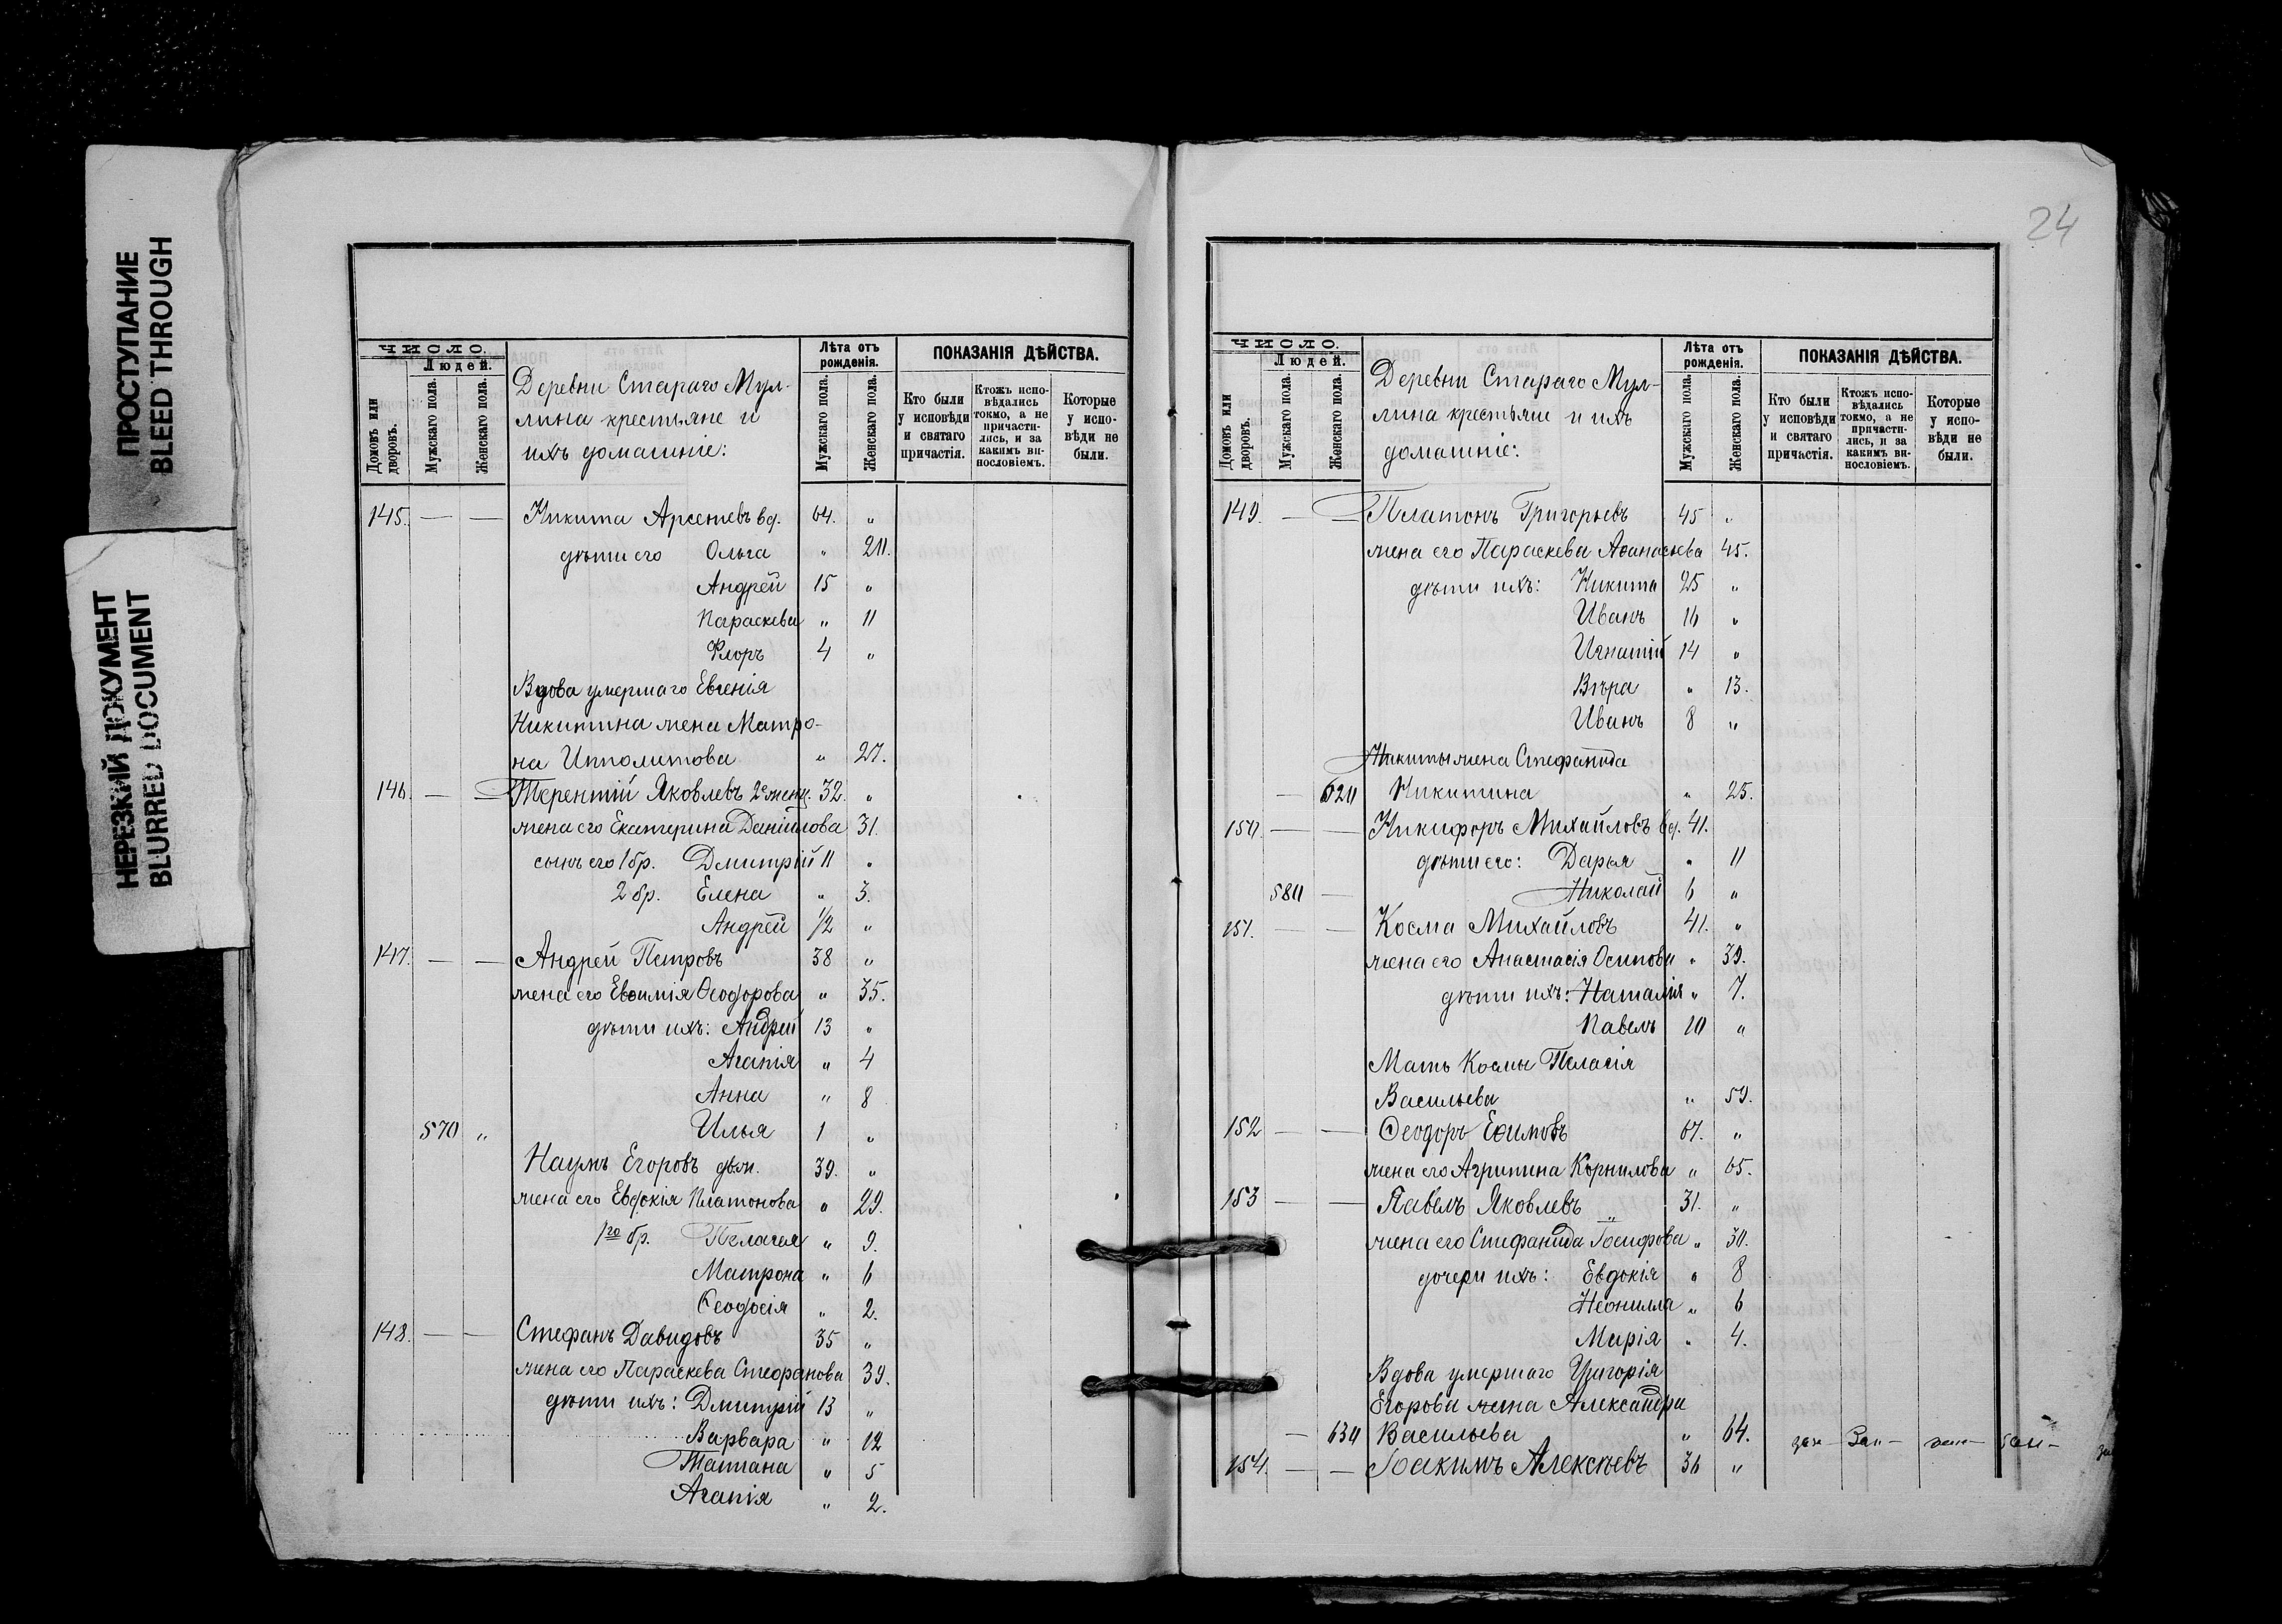 ПРОСТУПАНИЕ
BLEED THROUGH
НЕРЕЗКИЙ ДОКУМЕНТ
BLURRED DOCUMENT
ЧИСЛО.
Людей.
Домовъ или дворовъ.
Мужскаго пола.
Женскаго пола.
Деревни Стараго Мул-
лина крестьяне и
ихъ домашніе:
Лѣта отъ рожденія.
Мужскаго пола.
Женскаго пола.
ПОКАЗАНІЯ ДѢЙСТВА.
Кто были у исповѣди и святаго причастія.
Ктожъ испо-вѣдались токмо, а не причасти-лись, и за какимъ ви-нословіемъ.
Которые у испо-вѣди не были.
145. — — Никита Арсеньевъ вд. 64. "
дѣти его Ольга " 20.
Андрей 15 "
Параскева " 11
Флоръ 4 "
Вдова умершаго Евгенія
Никитина жена Матро-
на Ипполитова " 27.
146. — — Терентій Яковлевъ 2 жен. 32. "
жена его Екатерина Даніилова 31.
сынъ его 1 бр. Дмитрій 11 "
2 бр. Елена " 3.
Андрей 1/2 "
147. — — Андрей Петровъ 38 "
жена его Евѳимія Ѳеодорова " 35.
дѣти ихъ: Андрей 13 "
Агапія " 4
Анна " 8
570 " Илья 1 "
Наумъ Егоровъ двж. 39. "
жена его Евдокія Платонова " 29.
1го бр. Пелагея " 9.
Матрона " 6
Ѳеодосія " 2.
148. — — Стефанъ Давидовъ 35 "
жена его Параскева Стефанова 39.
дѣти ихъ: Дмитрій 13 "
Варвара " 12
Татіана " 5
Агапія " 2.
24
ЧИСЛО.
Людей.
Домовъ или дворовъ.
Мужскаго пола.
Женскаго пола.
Деревни Стараго Мул-
лина крестьяне и ихъ
домашніе:
Лѣта отъ рожденія.
Мужскаго пола.
Женскаго пола.
ПОКАЗАНІЯ ДѢЙСТВА.
Кто были у исповѣди и святаго причастія.
Ктожъ испо-вѣдались токмо, а не причасти-лись, и за какимъ ви-нословіемъ.
Которые у испо-вѣди не были.
149. — — Платонъ Григорьевъ 45 "
жена его Параскева Аѳанасьева 45.
дѣти ихъ: Никита 25 "
Иванъ 16 "
Игнатій 14 "
Вѣра " 13.
Иванъ 8 "
Никиты жена Стефанида
— 620 Никитина " 25.
150. — — Никифоръ Михайловъ вд. 41.
дѣти его: Дарья " 11
580 — Николай 6 "
151. — — Косма Михайловъ 41. "
жена его Анастасія Осипова " 39.
дѣти ихъ: Наталія " 7.
Павелъ 10 "
Мать Космы Пелагія
Васильева " 59.
152 — — Ѳеодоръ Еѳимовъ 67. "
жена его Агрипина Корнилова " 65.
153 — — Павелъ Яковлевъ 31. "
жена его Стефанида Іосифова " 30.
дочери ихъ: Евдокія " 8
Неонилла " 6
Марія " 4.
Вдова умершаго Григорія
Егорова жена Александра
— 630 Васильева " 64.
154. — — Іоакимъ Алексѣевъ 36 "